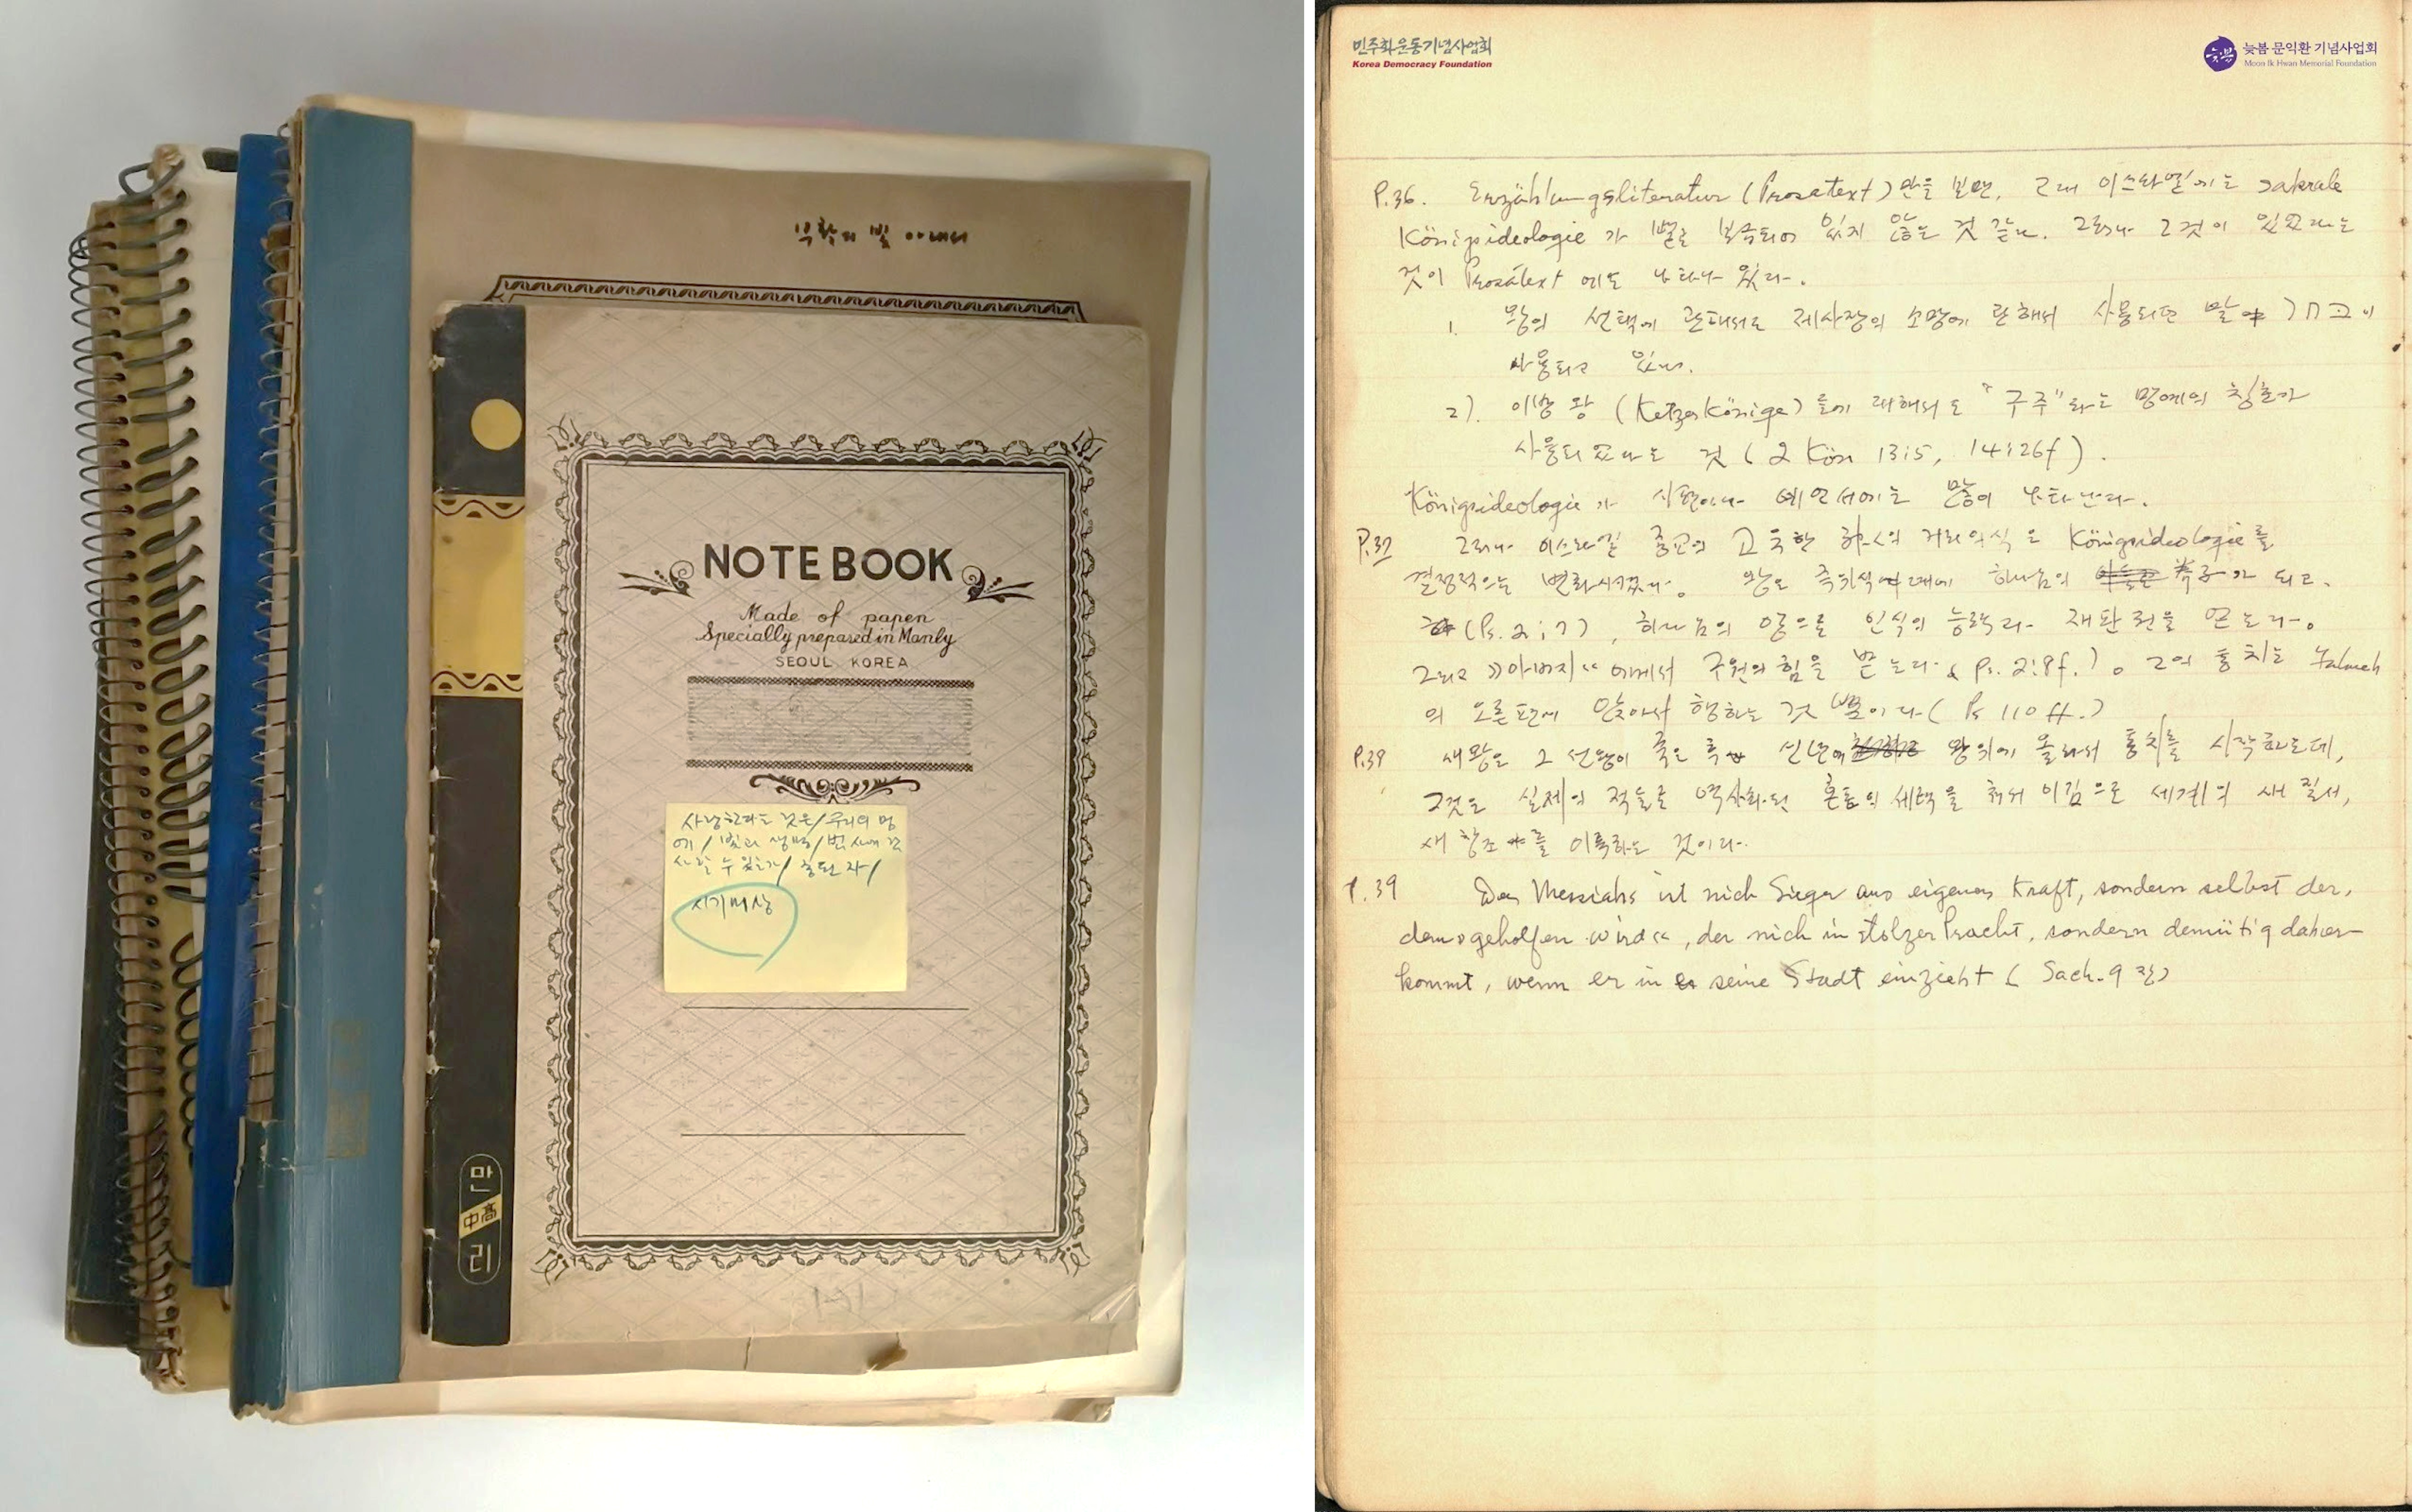 부활의 빛 아래서
NOTE BOOK
Made of papen
Specially prepared in Manly
SEOUL KOREA
사랑한다는 것은/우리의 멍
에/빛과 생명/
사람 수 있는가/
만
中高
리
민주화운동기념사업회
Korea Democracy Foundation
늦봄
늦봄 문익환 기념사업회
Moon Ik Hwan Memorial Foundation
P.36. Erzählungsliteratur (Prosatext)만을 보면, 고대 이스라엘에는 sakrale
Königsideologie가 별로 보급되어 있지 않는 것 같다. 그러나 그것이 있었다는
것이 Prosatext에도 나타나 있다.
1. 왕의 선택에 관해서도 제사장의 소명에 관해서 사용되던 말 בחר이
사용되고 있다.
2). 이방 왕 (Ketzerkönige)들에 대해서도 "구주"라는 명예의 칭호가
사용되었다는 것 (2 Kön 13:5, 14:26f).
Königsideologie가 시편이나 예언서에는 많이 나타난다.
P.37 그러나 이스라엘 종교의 고독한 의 거리의식은 Königsideologie를
결정적으로 변화시켰다. 왕은 즉위식 때에 하나님의 가 되고,
(Ps. 2:7), 하나님의 영으로 인식의 능력과 재판권을 얻는다.
그리고 »아버지« 에게서 구원의 힘을 받는다 (Ps. 2:8f.). 그의 통치는 Jahweh
의 오른편에 앉아서 행하는 것 뿐이다 (Ps 110 ff.)
P.39 새 왕은 그 선왕이 죽은 후 신년에 왕위에 올라서 통치를 시작하는데,
그것은 실제의 적들로 역사화된 혼돈의 세력을 쳐서 이김으로 세계의 새 질서,
새 창조를 이룩하는 것이다.
P.39 Der Messiahs ist nich Sieger aus eigener Kraft, sondern selbst der,
dem »geholfen wird«, der nich in stolzer Pracht, sondern demütig daher-
kommt, wenn er in seine Stadt einzieht (Sach. 9장)